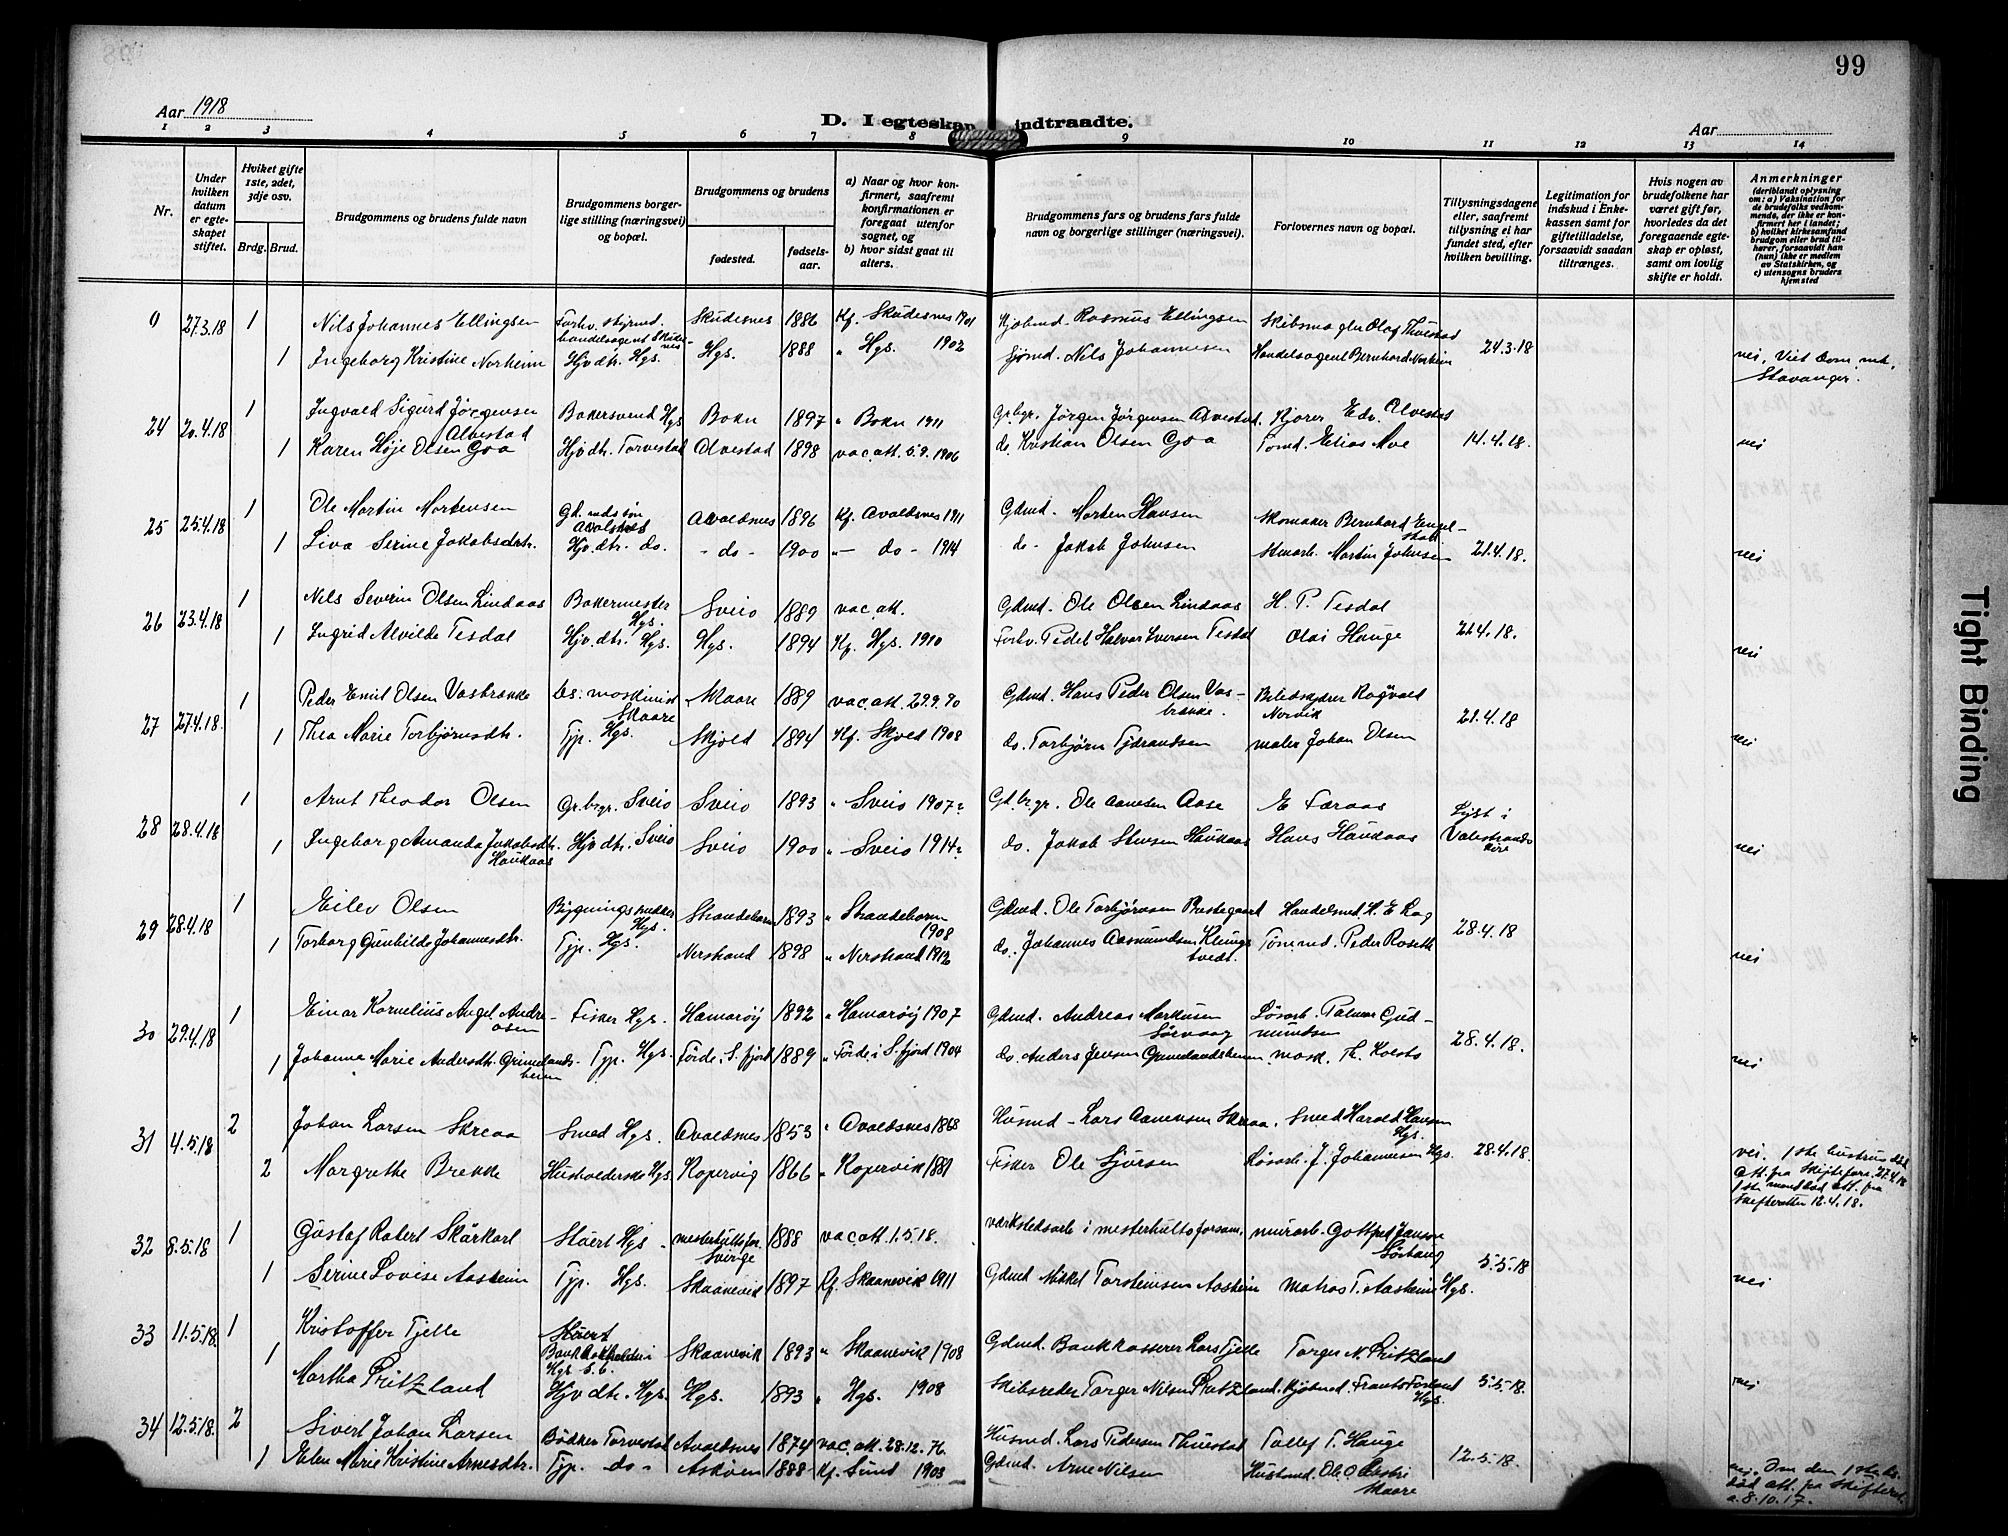 99
Aar 1918
D. I egteskap indtraadte.
Aar
1 2 3 4 5 6 7 8 9 10 11 12 13 14
Nr.
Under hvilken datum er egteskapet stiftet.
Hviket gifte 1ste, 2det, 3dje osv.
Brdg. Brud.
Brudgommens og brudens fulde navn
Brudgommens borgerlige stilling (næringsvei) og bopæl.
Brudgommens og brudens
fødested.
fødselsaar.
a) Naar og hvor konfirmert, saafremt konfirmationen er foregaat utenfor sognet, og
b) hvor sidst gaat til alters.
Brudgommens fars og brudens fars fulde navn og borgerlige stillinger (næringsvei).
Forlovernes navn og bopæl.
Tillysningsdagene eller, saafremt tillysning ei har fundet sted, efter hvilken bevilling.
Legitimation for indskud i Enkekassen samt for giftetilladelse, forsaavidt saadan tiltrænges.
Hvis nogen av brudefolkene har været gift før, hvorledes da det foregaaende egteskap er opløst, samt om lovlig skifte er holdt.
Anmerkninger (deriblandt oplysning om: a) Vaksination for de brudefolks vedkommende, der ikke er konfirmert her i landet; b) hvilket kirkesamfund brudgom eller brud tilhører, forsaavidt han (hun) ikke er medlem av Statskirken, og c) utensogns bruders hjemsted
27.3.18 1 Nils Johannes Ellingsen Forhv. styrmd. handelsagent Skudesnes Skudesnes 1886 Kf. Skudesnes 1901 Kjøbmd. Rasmus Ellingsen Skibsmægler Olaf Thuestad
1 Ingeborg Kristine Norheim Hjv. dtr. Hgs. Hgs. 1888 " Hgs. 1902 Sjømd. Nils Johannesen Handelsagent Bernhard Norheim 24.3.18 nei, Viet Dom. mk. Stavanger.
24 20.4.18 1 Ingvald Sigurd Jørgensen Alvestad Bakersvend Hgs Bokn 1897 " Bokn 1911 Gr.bgr. Jørgen Jørgensen Alvestad. Kjører Edv. Alvestad
1 Karen Høje Olsen Goa Hjv. dtr. Torvestad Alvestad 1898 vac. att. 5.9.1906 do. Kristian Olsen Goa Tomd. Elias Moe 14.4.18. nei
25 25.4.18 1 Ole Martin Mortensen Gd.mds søn Avaldsnes Avaldsnes 1896 Kf. Avaldsnes 1911 Gdmd. Morten Hansen Skomaker Bernhard Engelskøb
1 Liva Serine Jakobsdtr. Hjv. dtr. do. - do - 1900 " - do - 1914 do - Jakob Johnsen Stenarb. Martin Johnsen 21.4.18. nei
26 23.4.18 1 Nils Severin Olsen Lindaas Bakermester Hgs. Sveio 1889 vac. att. Gdmd. Ole Olsen Lindaas H. P. Tesdal
1 Ingrid Alvilde Tesdal Hjv. dtr. Hgs. Hgs. 1894 Kf. Hgs. 1910 Forhv. Pedel Halvor Iversen Tesdal Olai Hauge 21.4.18. nei
27 27.4.18. 1 Peder Emil Olsen Vasbrekke Ds. maskinist Skaare Skaare 1889 vac. att. 29.9.90 Gdmd. Hans Peder Olsen Vasbrekke. Biledskjærer Ragvald Nervik
1 Thea Marie Torbjørnsdtr. Tjp. Hgs. Skjold 1894 Kf. Skjold 1908 do. Torbjørn Tjdrandsen maler Johan Olsen 21.4.18 nei
28 28.4.18 1 Arnt Theodor Olsen Gr.brgr. Sveio Sveio 1893 " Sveio 1907 Gd.br.gr. Ole Aanesen Aase E Færaas
1 Ingeborg Amanda Jakobsdtr. Haukaas Hjv dtr. Sveio Sveio 1900 " Sveio 1914 do. Jakob Steensen Haukaas Hans Haukaas Lyst i Valestrands kirke nei
29 28.4.18 1 Eilev Olsen Bygningssnekker Hgs. Strandebarm 1893 " Strandebarm 1908 Gdmd. Ole Torbjørnsen Prestegaard Handelsmd. H. E. Lag
1 Torborg Gunhilde Johannesdtr. Tjp. Hgs. Nerstrand 1898 " Nerstrand 1912 do. Johannes Aasmundsen Klungtvedt. Tømmd. Peder Roseth 28.4.18 nei
30 29.4.18 1 Einar Kornelius Angel Andreasen Fisker Hgs. Hamarøij 1892 " Hamarøij 1907 Gdmd. Andreas Markusen Sørvaag Løsarb. Palmer Gudmundsen
1 Johanne Marie Andersdtr. Grimelandsheim Tjp. Hgs. Førde i S. fjord 1889 " Førde i S. fjord 1904 do. Anders Jensen Grimelandsheim mask. Th. Kolstø 28.4.18. nei
31 4.5.18 2 Johan Larsen Skreaa Smed Hgs. Avaldsnes 1853 " Avaldsnes 1868 Husmd - Lars Aanensen Skreaa. Smed Harald Hansen Hgs.
2 Margrethe Brekke Husholderske Hgs. Kopervig 1866 " Kopervik 1881 Fisker Ole Sjursen Løsarb. J. Johannesen Hgs. 28.4.18. nei. 1ste hustrus død att. fra Skifteforv. 27.4.18 1ste mand død att. fra Skifteretten 12.4.18.
32 8.5.18 1 Gustaf Robert Skårkarl Stuert Hgs. mesterhultsfor. Sverige 1888 vac att. 1.5.18. værkstedsarb i mesterhults forsam. murarb. Gottfrd Janson Sørhaug
1 Serine Lovise Aasheim Tjp. Hgs. Skaanevik 1897 Kf. Skaanevik 1911 Gdmd Mikkel Torsteinsen Aasheim matros T. Aasheim Hgs. 5.5.18 nei
33 11.5.18. 1 Kristoffer Tjelle Bankbokholder i Hgs. S.b. Skaanevik 1893 " Skaanevik 1908 Gdmd. Bankkasserer Lars Tjelle Torger N. Pritzland
1 Martha Pritzland Hjv dtr. Hgs. Hgs. 1893 " Hgs. 1908 Skibsreder Torger Nilsen Pritzland. Kjøbmd. Frants Forland Hgs. 5.5.18. nei
34 12.5.18. 2 Sivert Johan Larsen Bødker Torvestad Avaldsnes 1874 vac. att. 28.12.76. Husmd. Lars Pedersen Thuestad Tollef T. Hauge
1 Elen Marie Kristine Arnesdtr. Tjp. - do - Askøen 1888 Kf. Sund 1903 Gdmd. Arne Nilsen Husmd. Ole O. Skaare 12.5.18. nei. Om den 1ste hs. død att. fra Skifteret. a. 8.10.17.
Tight Binding